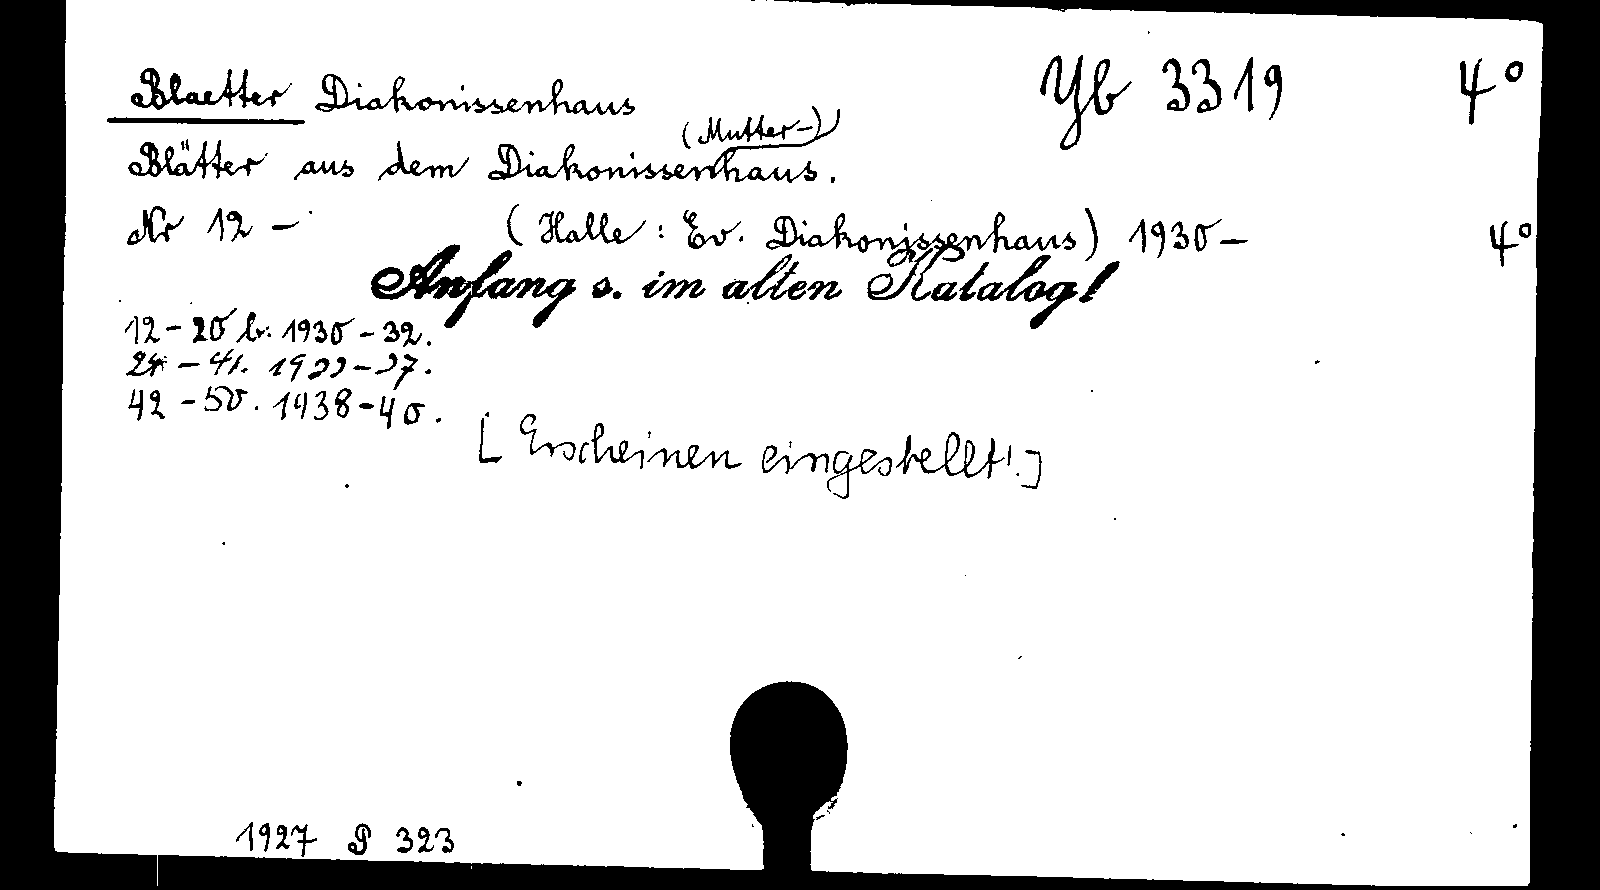 Blaetter Diakonissenhaus Yb 3319 4°
(Mutter-)
Blätter aus dem Diakonissenhaus.
Nr 12 - (Halle: Ev. Diakonissenhaus) 1930- 4°
Anfang s. im alten Katalog!
12-20 1930-32.
- 41. 1933-37.
42-50. 1938-40.
[Erscheinen eingestellt!]
1927 P 323